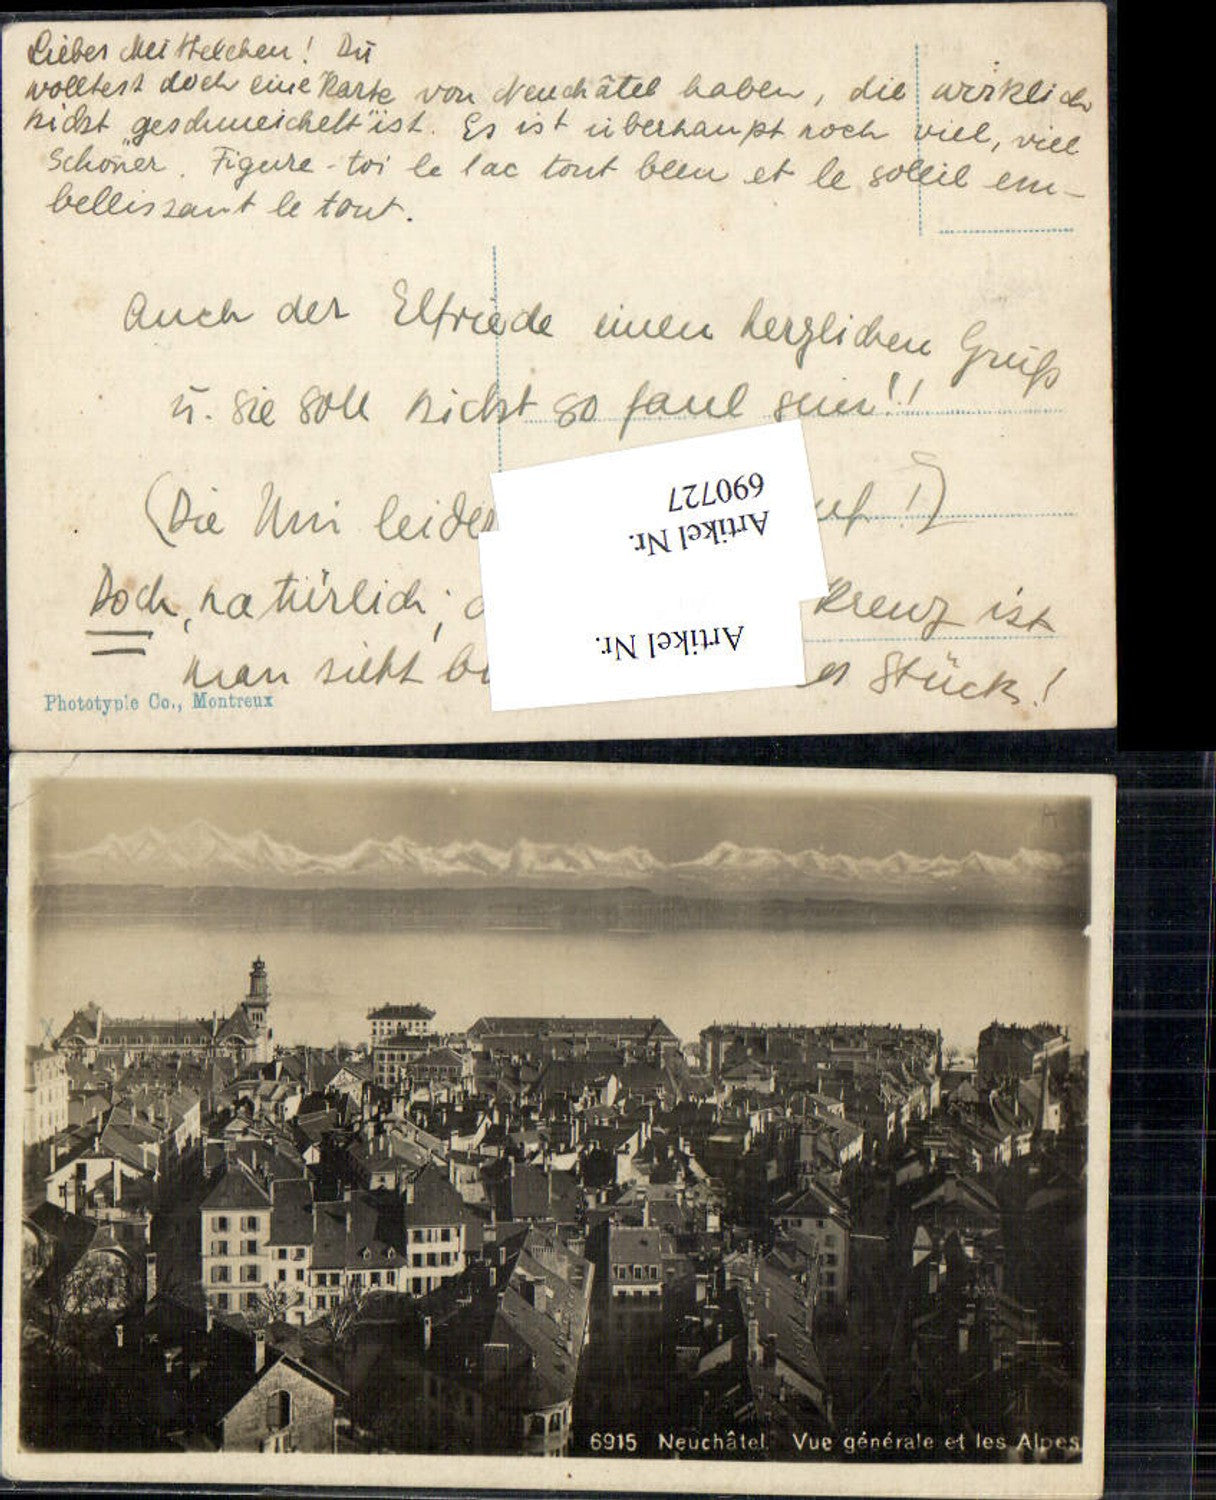 Liebes Mei Helchen! Du
wolltest doch eine Karte von Neuchâtel haben, die wirklich
nicht „geschmeichelt" ist. Es ist überhaupt noch viel, viel
schöner. Figure-toi le lac tout bleu et le soleil em-
bellissant le tout.
Auch der Elfriede einen herzlichen Gruß
u. sie soll nicht so faul sein!!
(Die Uni leider !)
Doch, natürlich; Kreuz ist
man sieht Stück!
690727
Artikel Nr.
Artikel Nr.
Phototypie Co., Montreux
6915 Neuchâtel. Vue générale et les Alpes